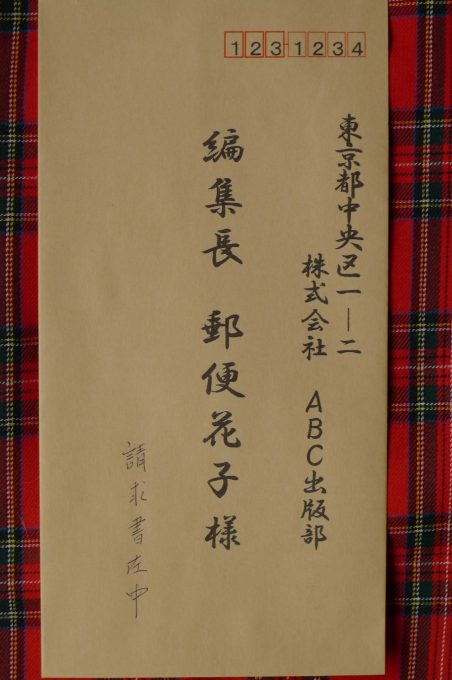 1231234
東京都中央区一―二
株式会社　ABC出版部
編集長　郵便花子様
請求書在中